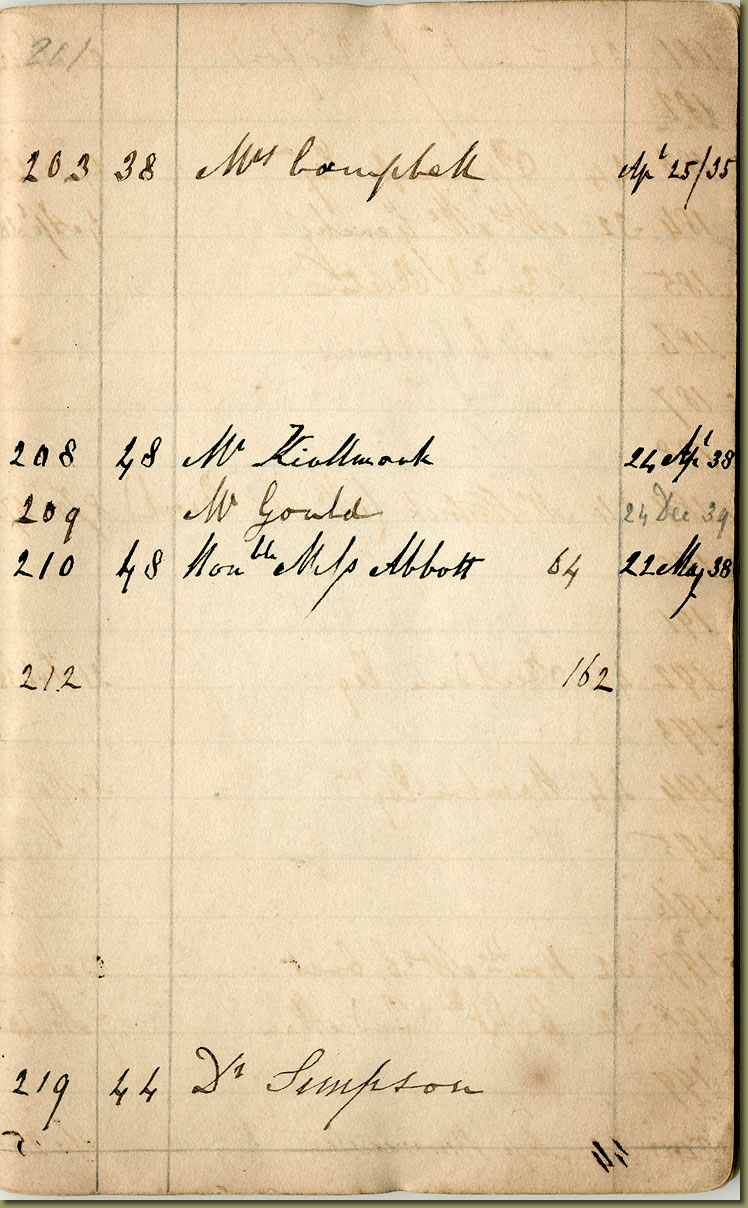 201
203 38 Mrs Campbell Apl 25/35
208 48 Mr Kiallmark 24 Apl 38
209 Mr Gould 24 Dec 39
210 48 Honble Miss Abbott 64 22 May 38
212 162
219 44 Dr Simpson